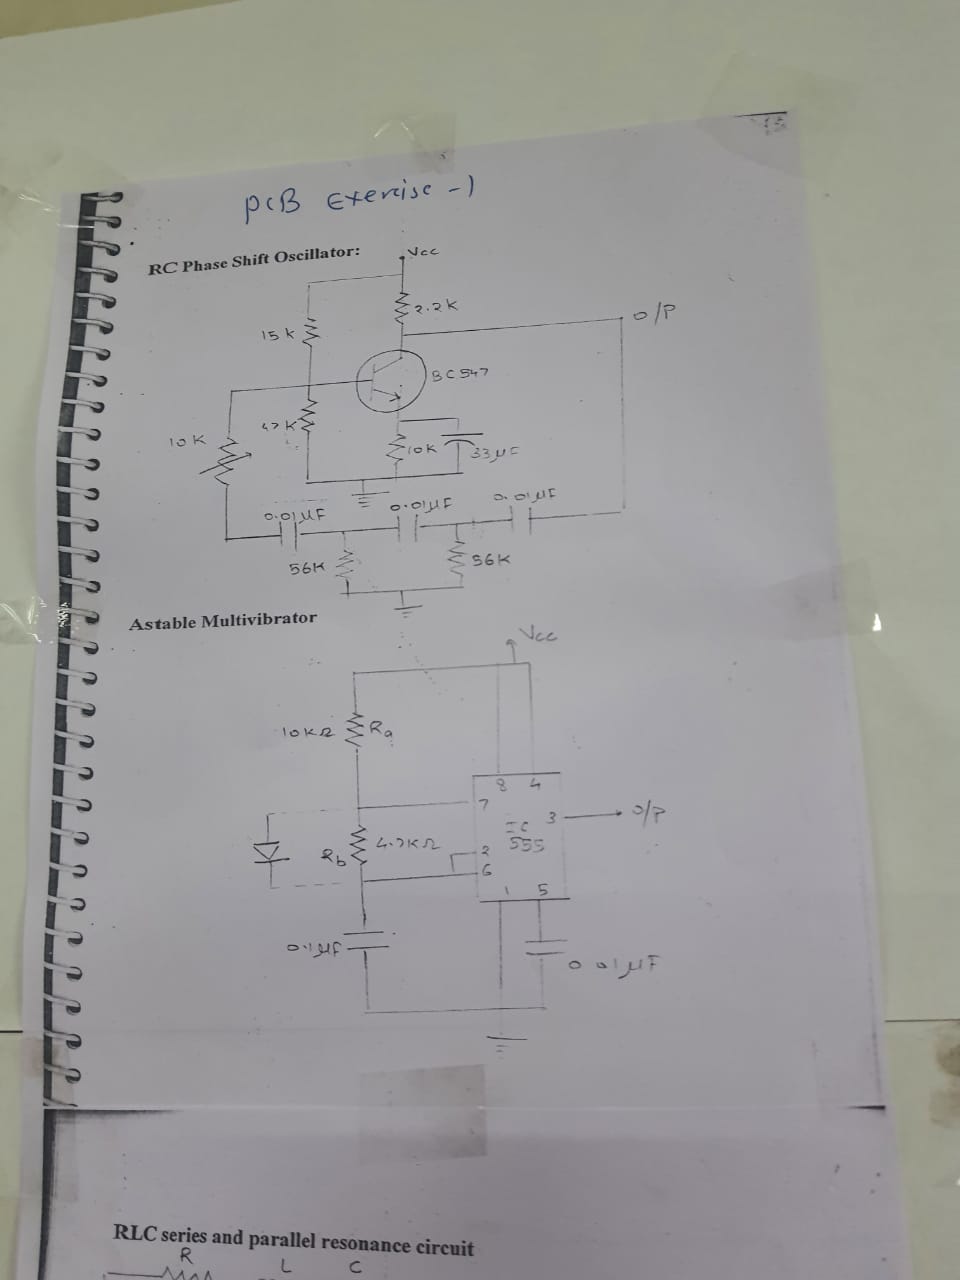 PCB Exercise -1
RC Phase Shift Oscillator:
Vcc
2.2K
15 K
O/P
BC547
47K
10K
10K
33µF
0.01µF
0.01µF
0.01µF
56K
56K
Astable Multivibrator
Vcc
10KΩ
Ra
8 4
7
3
O/P
IC
555
Rb
4.7KΩ
2
6
1 5
0.1µF
0.01µF
RLC series and parallel resonance circuit
R
L
C